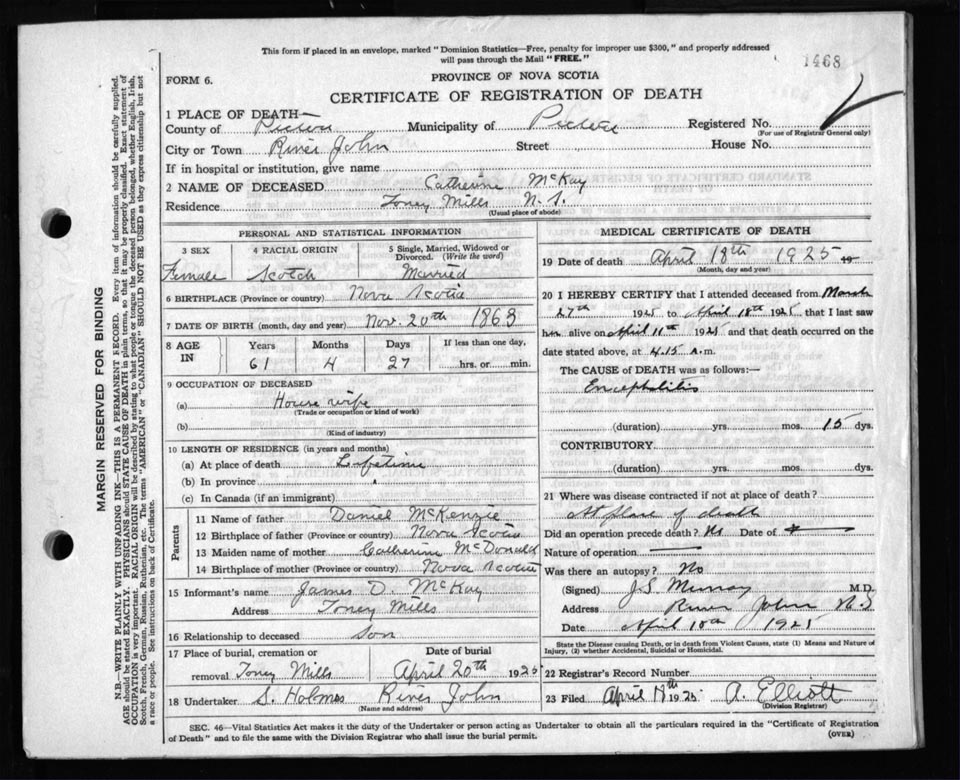 This form if placed in an envelope, marked "Dominion Statistics—Free, penalty for improper use $300," and properly addressed
will pass through the Mail "FREE."
1468
FORM 6.
PROVINCE OF NOVA SCOTIA
CERTIFICATE OF REGISTRATION OF DEATH
1 PLACE OF DEATH—
County of Pictou Municipality of Pictou Registered No.
(For use of Registrar General only)
City or Town River John Street House No.
If in hospital or institution, give name
2 NAME OF DECEASED Catherine McKay
Residence Toney Mills N. S.
(Usual place of abode)
PERSONAL AND STATISTICAL INFORMATION
3 SEX 4 RACIAL ORIGIN 5 Single, Married, Widowed or
Divorced. (Write the word)
Female Scotch Married
6 BIRTHPLACE (Province or country) Nova Scotia
7 DATE OF BIRTH (month, day and year) Nov. 20th 1863
8 AGE IN Years Months Days If less than one day,
61 4 27 hrs. or min.
9 OCCUPATION OF DECEASED
(a) House wife
(Trade or occupation or kind of work)
(b)
(Kind of industry)
10 LENGTH OF RESIDENCE (in years and months)
(a) At place of death Lifetime
(b) In province "
(c) In Canada (if an immigrant)
Parents
11 Name of father Daniel McKenzie
12 Birthplace of father (Province or country) Nova Scotia
13 Maiden name of mother Catherine McDonald
14 Birthplace of mother (Province or country) Nova Scotia
15 Informant's name James D. McKay
Address Toney Mills
16 Relationship to deceased Son
17 Place of burial, cremation or Date of burial
removal Toney Mills April 20th 1925
18 Undertaker S. Holmes River John
(Name and address)
MEDICAL CERTIFICATE OF DEATH
19 Date of death April 18th 1925 19
(Month, day and year)
20 I HEREBY CERTIFY that I attended deceased from March
27th 1925 to April 18th 1925, that I last saw
her alive on April 11th 1925 and that death occurred on
date stated above, at 4.15 a.m.
The CAUSE of DEATH was as follows:—
Encephalitis
(duration) yrs. mos. 15 dys.
CONTRIBUTORY.
(duration) yrs. mos. dys.
21 Where was disease contracted if not at place of death?
At place of death
Did an operation precede death? No Date of
Nature of operation
Was there an autopsy? No
(Signed) J. S. Murray M.D.
Address River John N.S
Date April 18th 1925
State the Disease causing Death, or in death from Violent Causes, state (1) Means and Nature of
Injury, (2) whether Accidental, Suicidal or Homicidal.
22 Registrar's Record Number
23 Filed April 1925 A. Elliott
(Division Registrar)
SEC. 46—Vital Statistics Act makes it the duty of the Undertaker or person acting as Undertaker to obtain all the particulars required in the "Certificate of Registration
of Death" and to file the same with the Division Registrar who shall issue the burial permit.
(OVER)
MARGIN RESERVED FOR BINDING
N.B.—WRITE PLAINLY WITH UNFADING INK—THIS IS A PERMANENT RECORD. Every item of information should be carefully supplied.
AGE should be stated EXACTLY. PHYSICIANS should STATE CAUSE OF DEATH in plain terms, so that it may be properly classified. Exact statement of
OCCUPATION is very important. RACIAL ORIGIN will be described by stating to what people or tongue the deceased person belonged, whether English, Irish,
Scotch, French, German, Russian, Ruthenian, etc. The terms "AMERICAN" or "CANADIAN" SHOULD NOT BE USED as they express citizenship but not
a race of people. See instructions on back of Certificate.